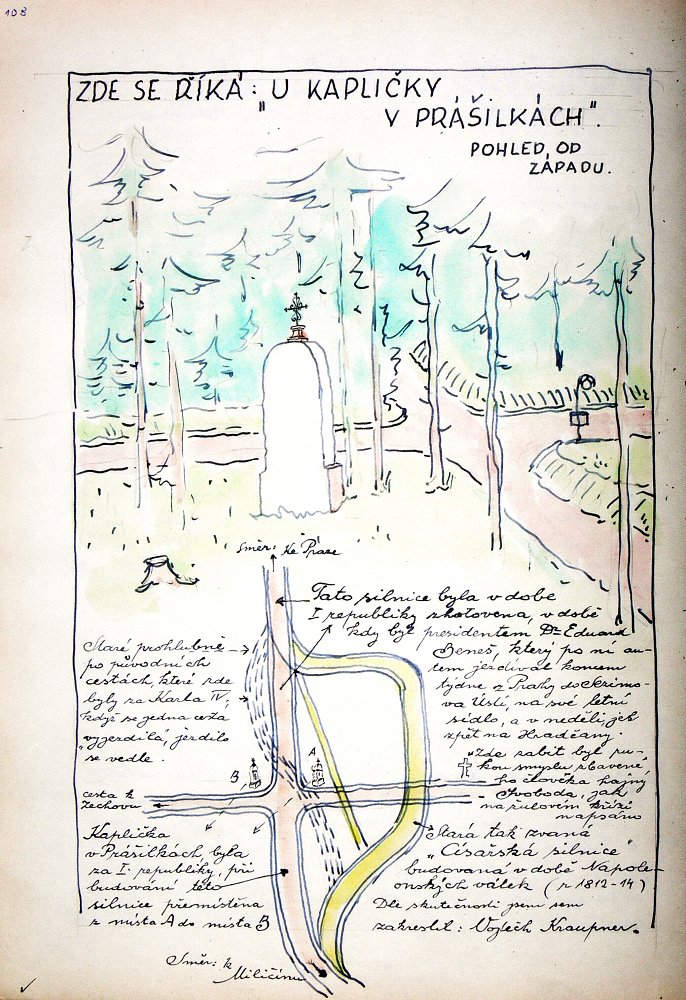 108
ZDE SE ŘÍKÁ: „U KAPLIČKY
V PRÁŠILKÁCH".
POHLED OD
ZÁPADU.
Směr: Ke Praze
Tato silnice byla v době
I republiky zhotovena, v době
kdy byl presidentem Dr Eduard
Beneš, který po ní au-
tem jezdíval koncem
týdne z Prahy do Sezimo-
va Ústí, na své letní
sídlo, a v neděli jel
zpět na Hradčany.
Staré prohlubně
po původních
cestách, které zde
byly za Karla IV,
když se jedna cesta
"vyjezdila", jezdilo
se vedle.
"Zde zabit byl ru-
kou smyslu zbavené-
ho člověka hajný
Svoboda, jak
na žulovém kříži
napsáno
A
B
cesta k
Zechovu
Kaplička
v Prášilkách, byla
za I. republiky, při
budování této
silnice přemístěna
z místa A do místa B
Stará tak zvaná
„Císařská silnice"
budovaná v době Napole-
onských válek (r 1812-14)
Dle skutečnosti jsem sem
zakreslil: Vojtěch Kraupner.
Směr: k
Miličínu